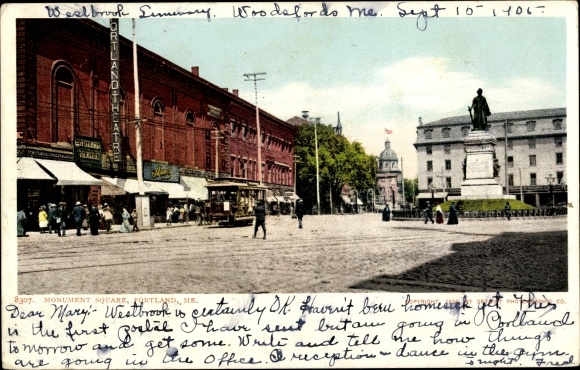 Westbrook Seminary. Woodsfords Me. Sept 15- 1905-
PORTLAND THEATRE
8307. MONUMENT SQUARE, PORTLAND, ME.
COPYRIGHT, BY DETROIT PHOTOGRAPHIC CO.
Dear Mary:- Westbrook is certainly O.K. Haven't been homesick yet. This
is the first postal I have sent but am going in Portland
tomorrow and get some. Write and tell me how things
are going in the Office. A reception & dance in the gym
tonight. Fred